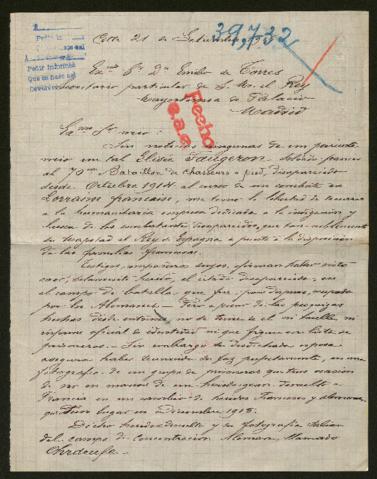 39732
Cette 21 de
Exmo Sr Dn Emilio de Torres
Secretario particular de S. M. el Rey
Mayordomia de Palacio
Madrid
Hecho
Exmo Sr mio:
Sin noticias ningunas de un pariente
mio un tal Elidia Faugeron soldado francés
al 70mo Bataillon de Chasseurs a pied, desaparecido
desde Octubre 1914 al curso de un combate en
Lorraine francaise, me tomo la libertad de recurrir
a la humanitaria empresa dedicada a la indagacion y
busca de los combatantes desaparecidos, que tan noblemente
su Magestad el Rey de España a puesto a la disposicion
de las familias francesas.
Testigos, compañeros suyos, afirman haber visto
caer, el citado desaparecido, en
el campo de batalla que fue, ocupado
por los Alemanes. Pero a pesar de las pesquizas
hechas desde entonces no se tiene de el ni huella, ni
informe oficial de identidad ni que figura en lista de
prisoneros. Sin embargo su esposa
asegura haber reconocido de faz perfectamente, en una
fotografia de un grupo de prisoneros que tuvo ocasion
de ver en manos de un herido devuelto a
Francia en un cambio de heridos franceses y alemanes
que tuvo lugar en diciembre 1915.
Dicho herido devuelto y su fotografia salian
del campo de concentracion Aleman, llamado
Ohrdruf.